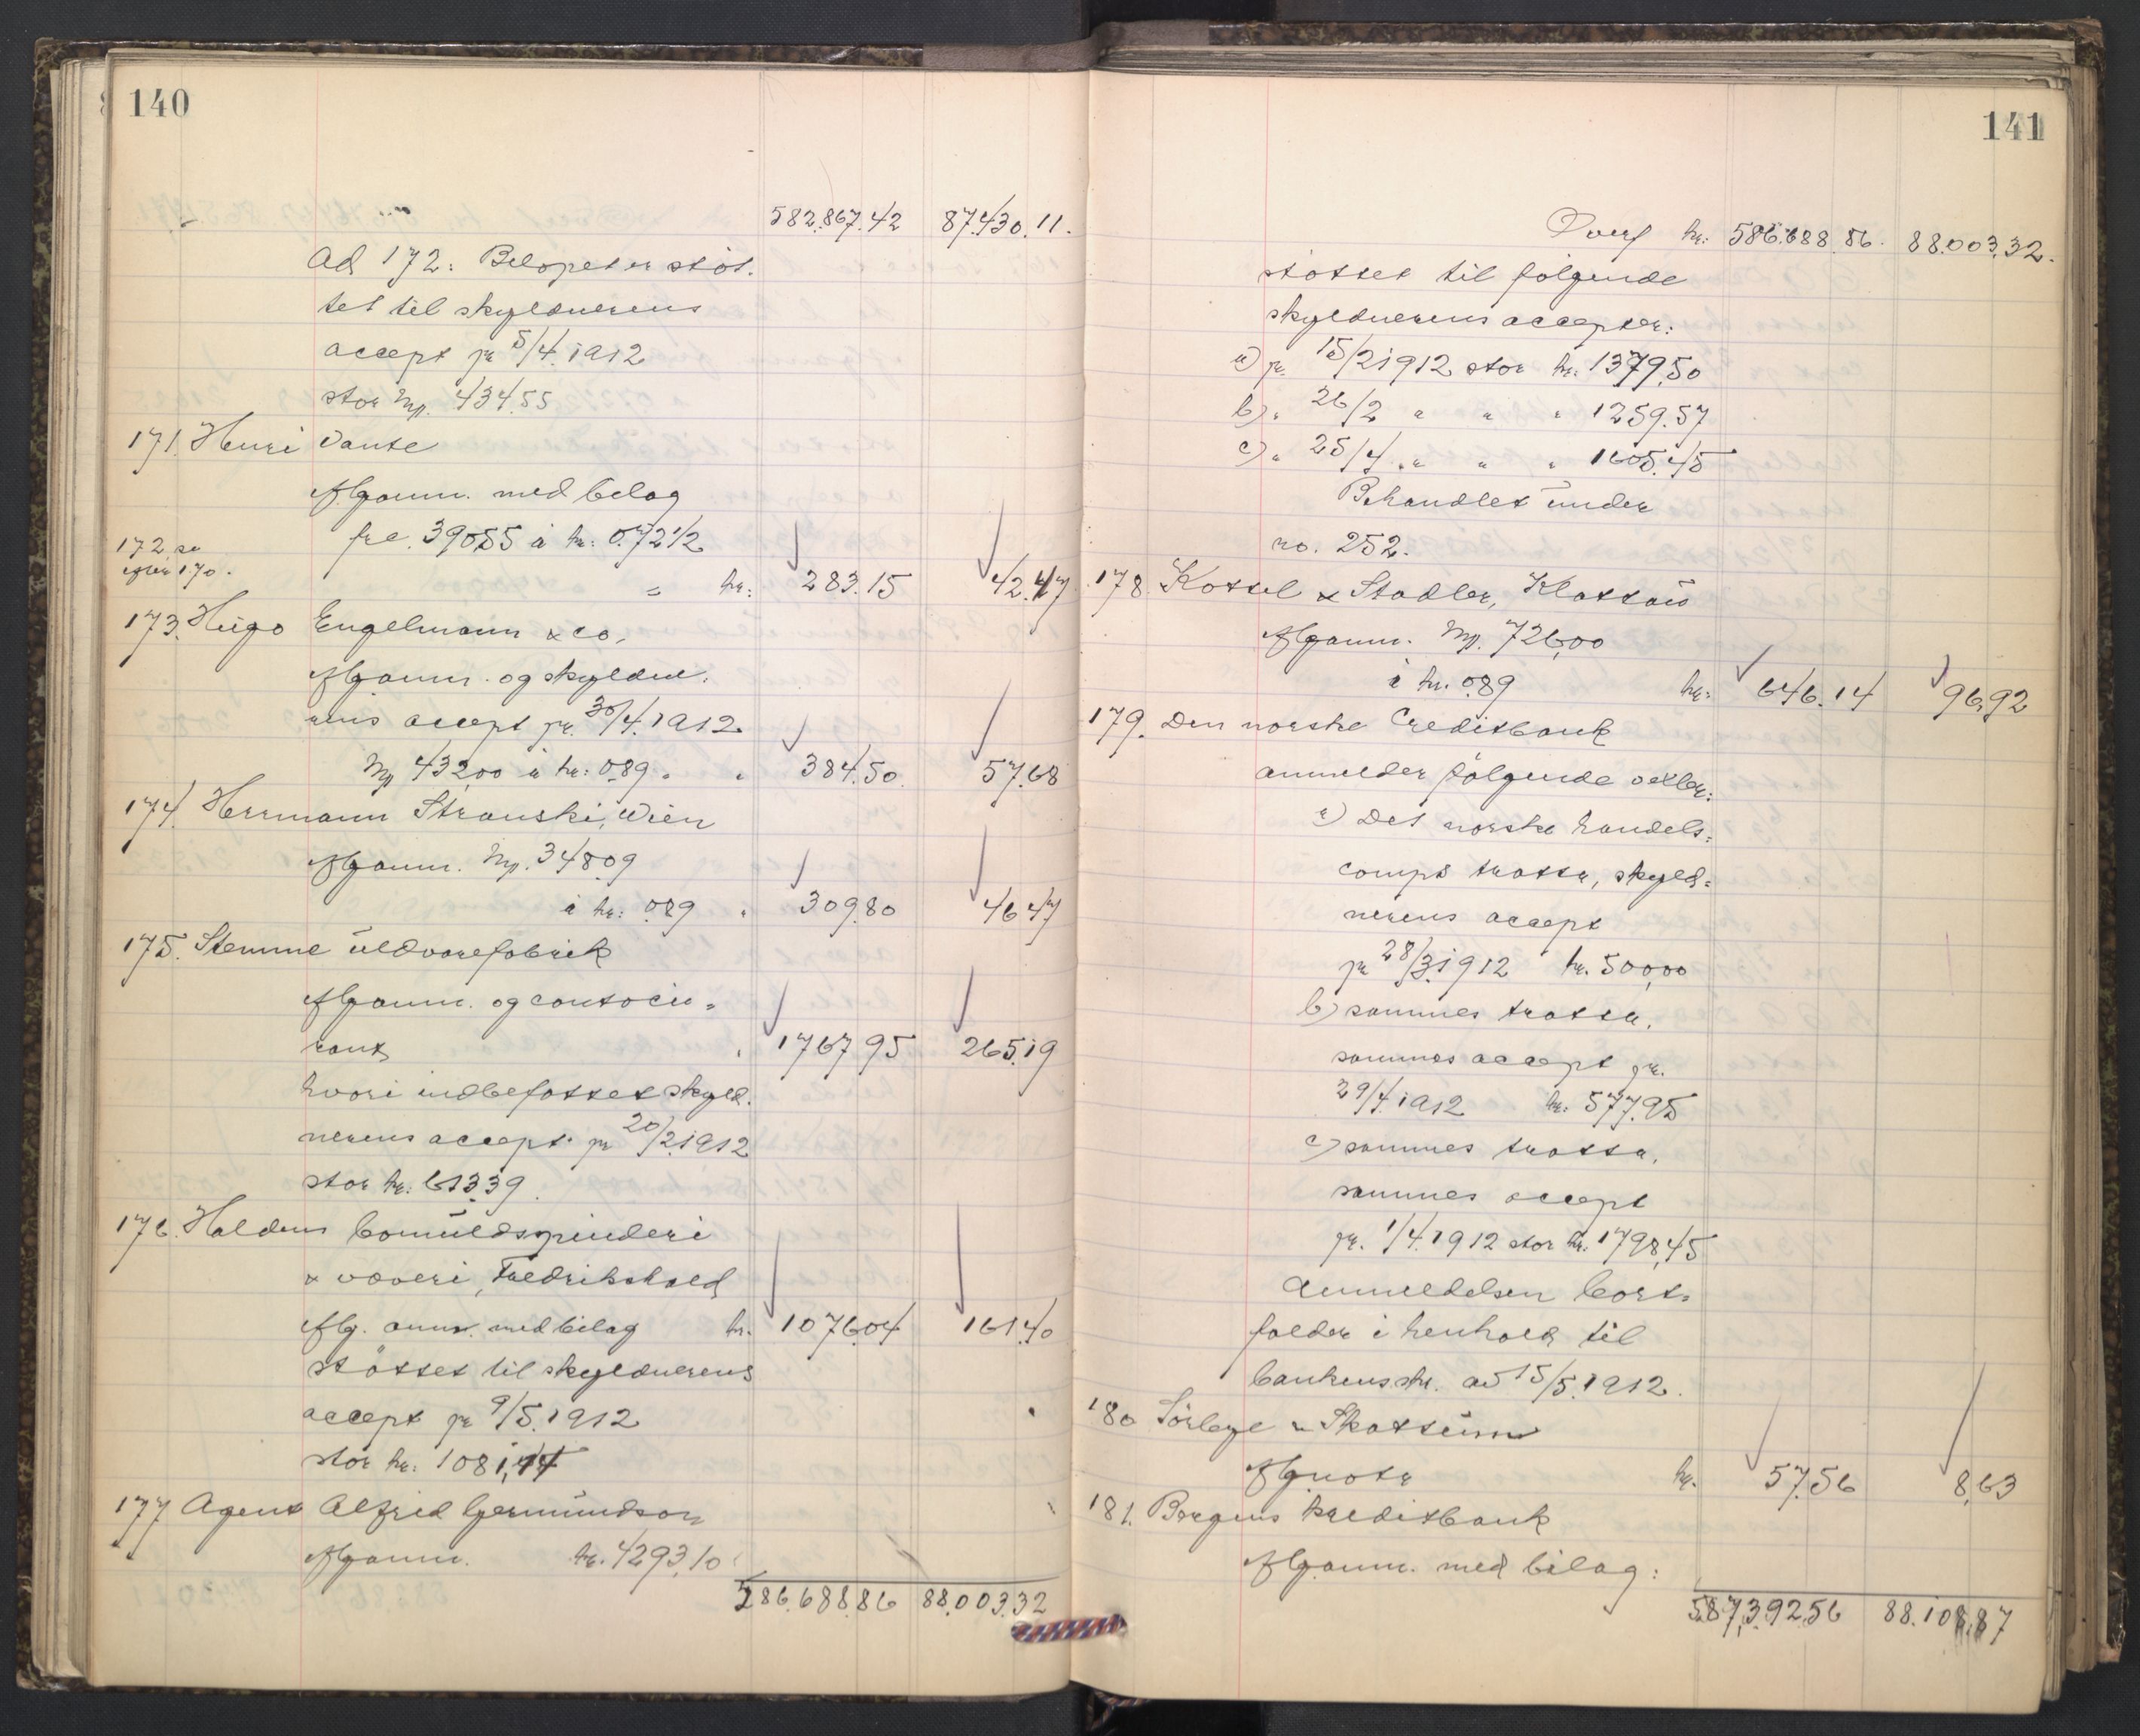 140
582.867.42 87.430.11.
Ad 172: Beløpet er støt-
tet til skyldnerens
accept pr 5/4.1912
stor Mp. 434.55
171. Henri Dante
Afg anm. med bilag
frc. 390.55 à kr: 0.72 1/2
172 se
efter 170.
= kr: 283.15 42.47
173. Hugo Engelmann & co.
Afg anm. og skyldne-
rens accept pr. 30/4.1912
Mp 432,00 à kr: 0.89 " " 384.50 57.68
174. Herrmann Stranski, Wien
Afg anm. Mp. 348.09
à kr: 0.89 " 309.80 46.47
175. Stemme uldvarefabrik
Afg anm. og contocu-
rant " 1767.95 265.19
hvori indbefattet skyld-
nerens accept pr 20/2.1912
stor kr: 613.39.
176. Haldens bomuldspinderi
& væveri, Fredrikshald
Afg. anm. med bilag kr. 1076.04 161.40
støttet til skyldnerens
accept pr 9/5.1912
stor kr: 1081,44
177 Agent Alfred Gjermundson
Afg anm. kr. 4293,10
586.688.86 88.003.32
141
Overf kr: 586.688.86. 88.003.32.
støttet til følgende
skyldnerens accepter:
a) pr. 15/2 1912 stor kr: 1379.50
b) " 26/2 " " " 1259.57
c) " 25/4 " " " 1605.45
Behandlet under
no. 252.
178. Kossel & Stadler, Klattau
Afg anm. Mp. 726,00
à kr. 0.89 kr: 646.14 96.92
179. Den norske Creditbank
anmelder følgende vexler:
a) Det norske handels-
compt tratte, skyld-
nerens accept
pr 28/3.1912 kr. 500,00
b) sammes tratte,
sammes accept pr.
29/4.1912 kr: 577.95
c) sammes tratte,
sammes accept
pr. 1/4.1912 stor kr. 1798,45
Anmeldelsen bort-
falder i henhold til
bankens skr. av 15/5.1912.
180 Sörbye & Skattum
Afg nota kr. 57.56 8,63
181. Bergens kreditbank
Afg anm. med bilag:
587,392.56 88.108,87